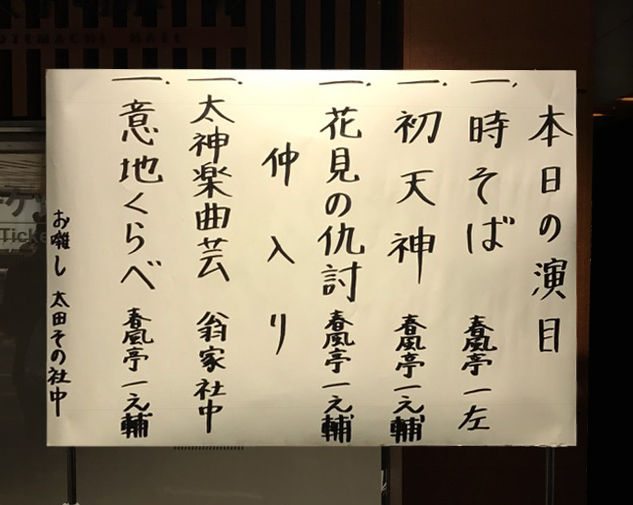 本日の演目
一、時そば 春風亭一左
一、初天神 春風亭一之輔
一、花見の仇討 春風亭一之輔
仲入り
一、太神楽曲芸 翁家社中
一、意地くらべ 春風亭一之輔
お囃し 太田その社中
ケ
Ticke